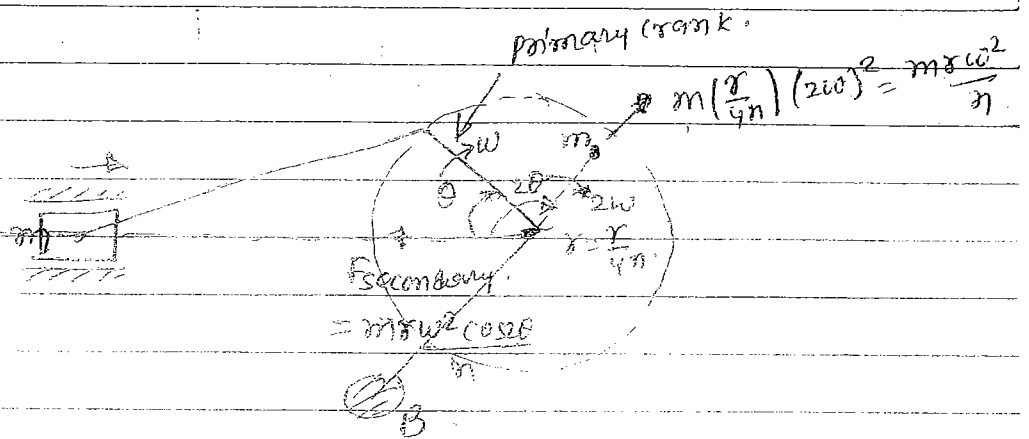 primary crank.
m(r/4n)(2ω)² = mrω²/n
m
ω
θ
2θ
2ω
m
r = r/4n
Fsecondary.
= mrω² cos2θ/n
B